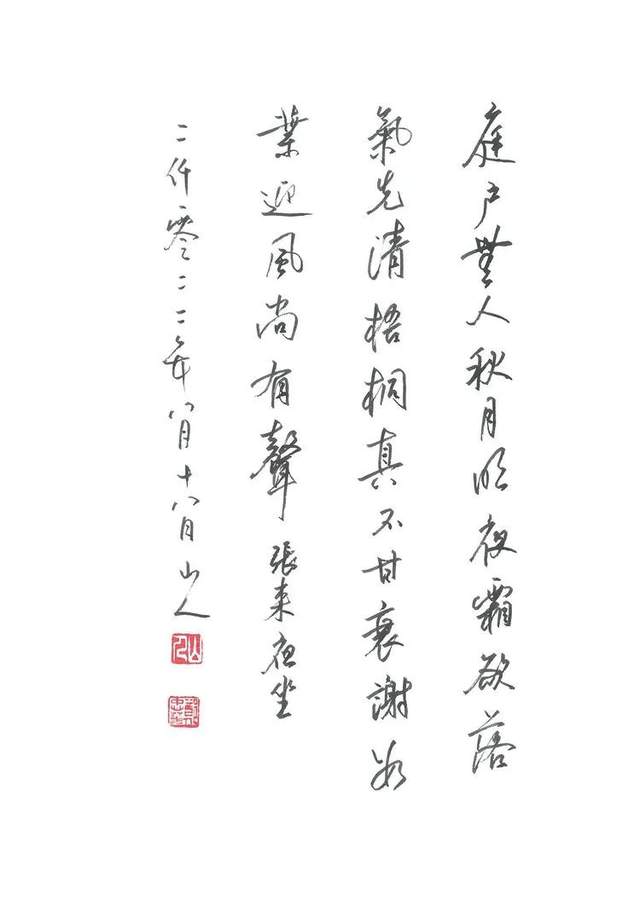 庭戶無人秋月明夜霜欲落
氣先清梧桐真不甘衰謝数
葉迎風尚有聲 張耒夜坐
二仟零二二年八月十八日山人
山人